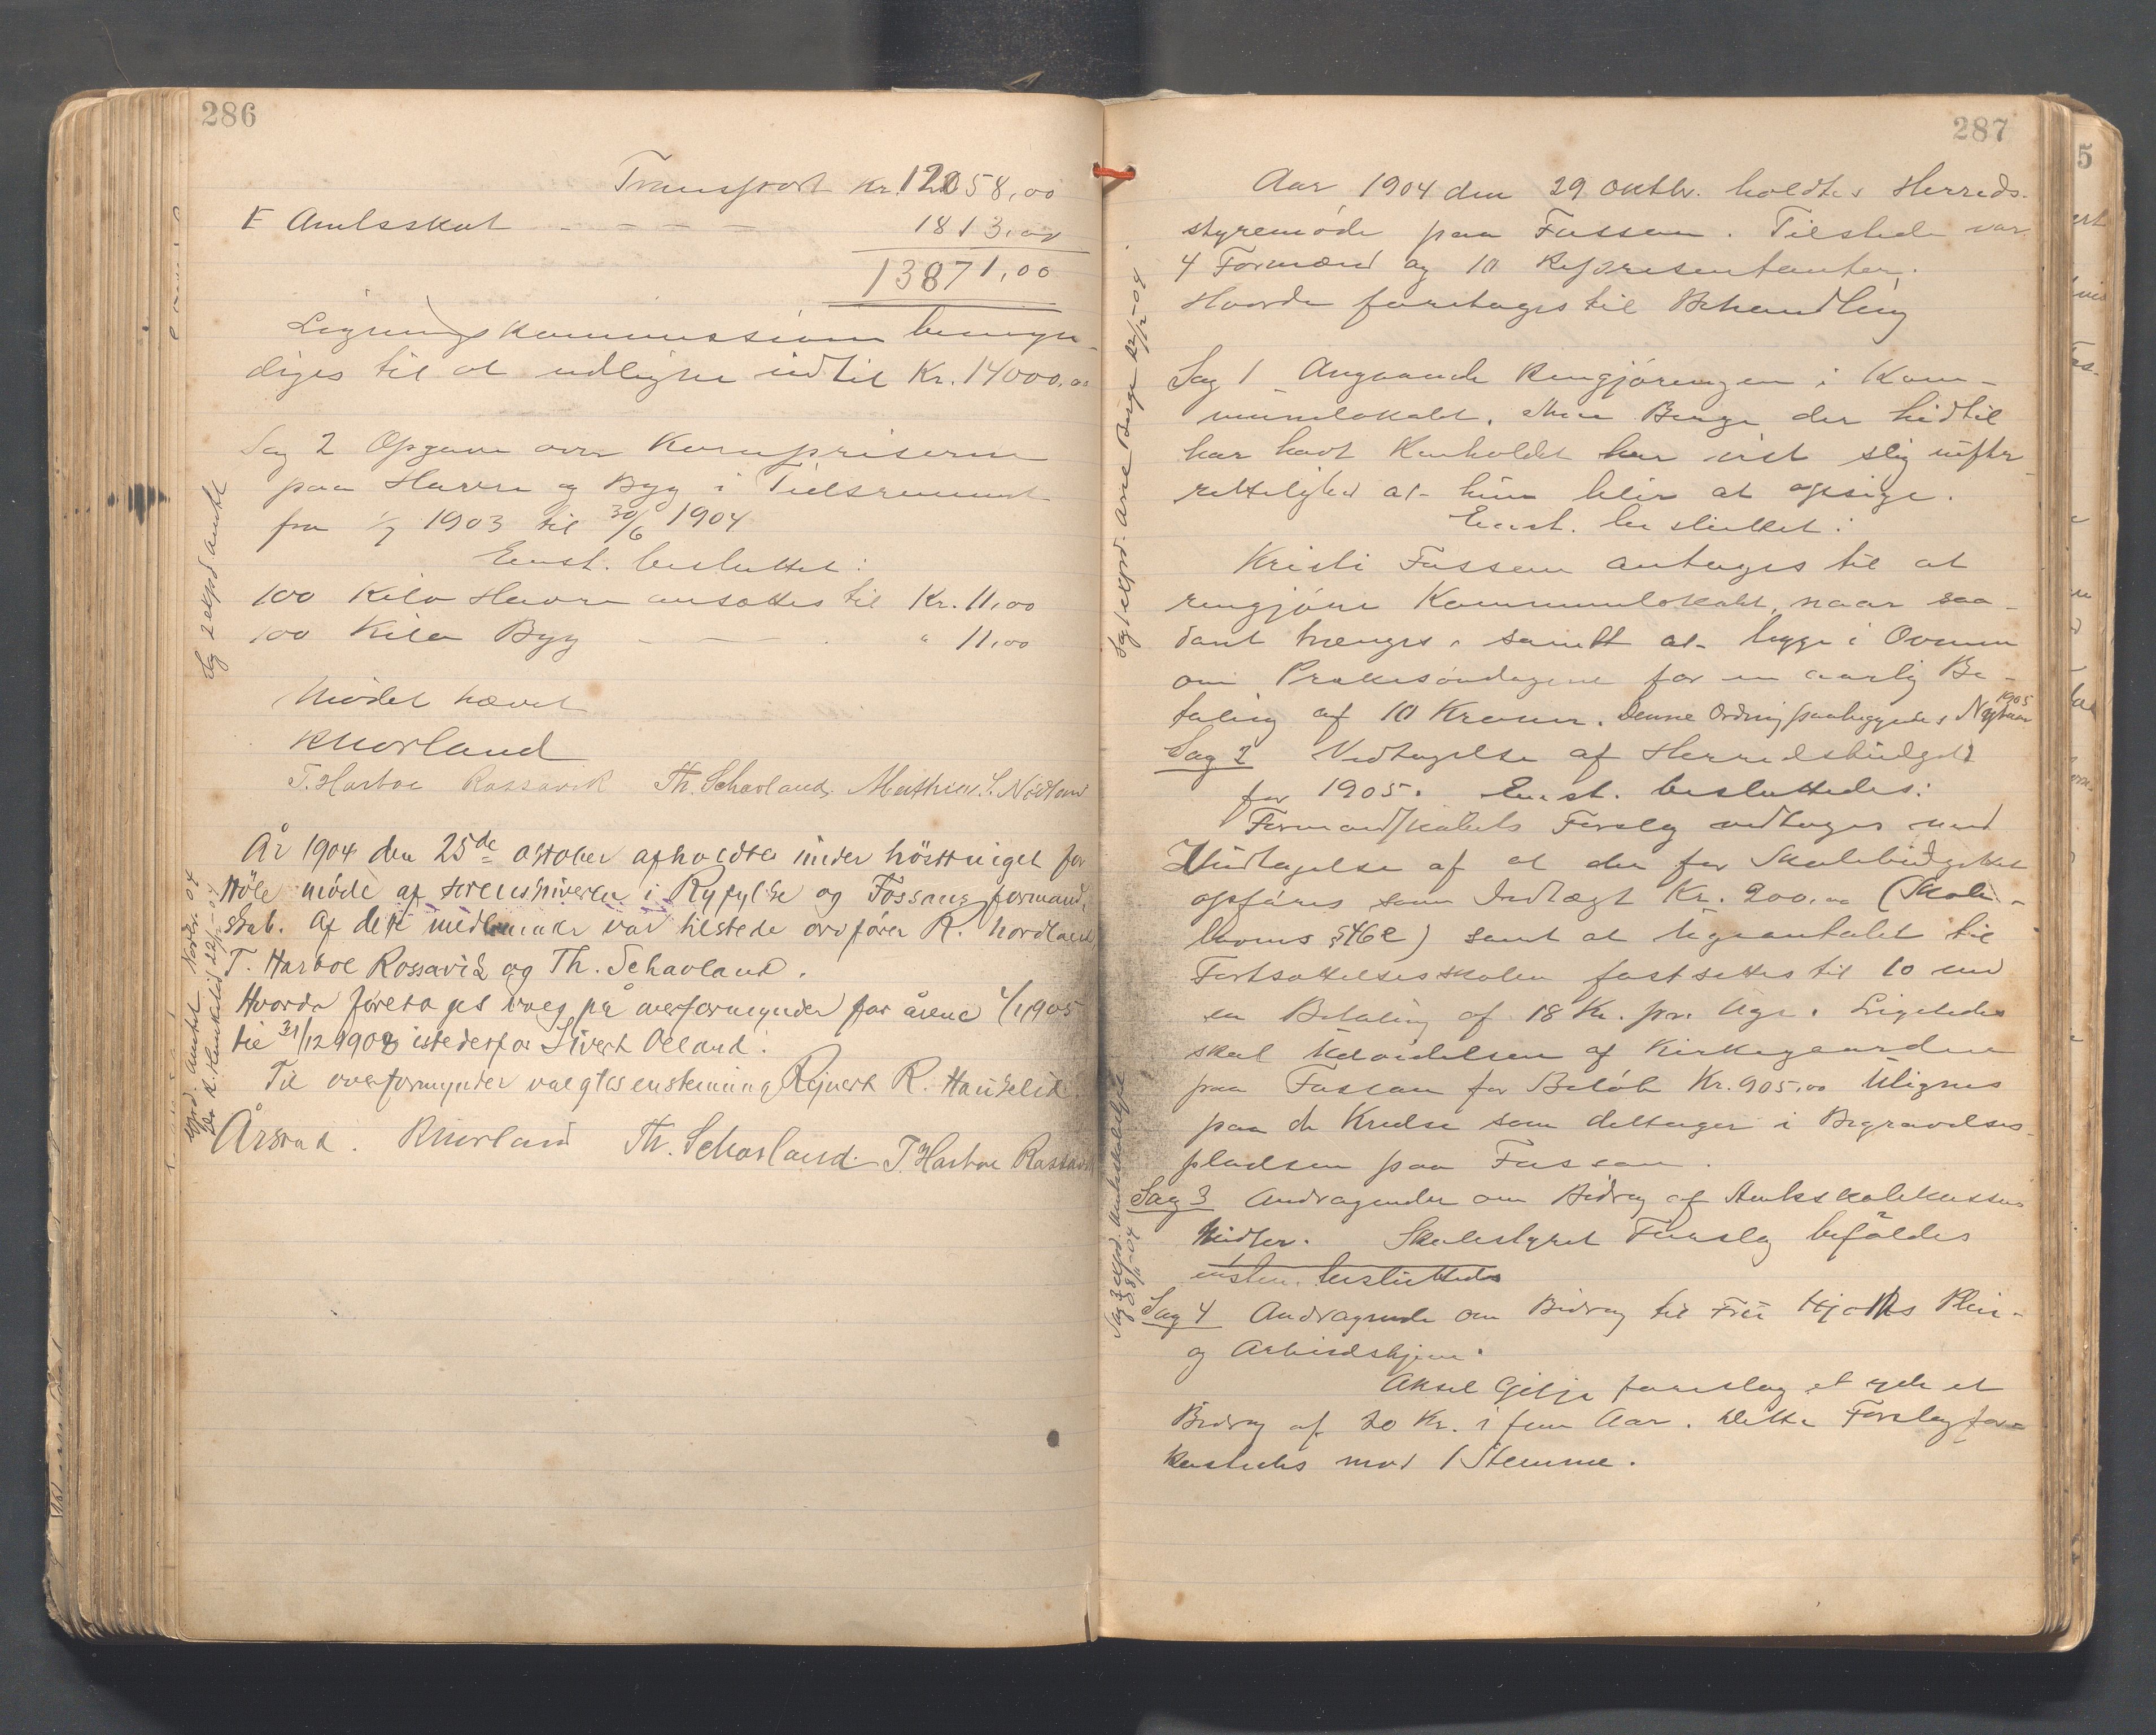 286
Transport Kr. 12058,00
E Amtsskat - - - - 1813,00
13871,00
Ligningskommissionen bemyn-
diges til at udligne indtil Kr. 14000,00
Sag 2 Opgave over Kornpriserne
paa Havre og Byg i Tidsrummet
fra 1/7 1903 til 30/6 1904
Enst. besluttet:
100 Kilo Havre ansættes til Kr. 11,00
100 Kilo Byg - - - " 11,00
Sag 2 expd. amtet
Mødet hævet
RNorland
T. Harboe Rossavik Th. Schavland. Mathias S. Nedland
År 1904 den 25de oktober afholdtes under høsttinget for
Høle møde af sorenskriveren i Ryfylke og Fossans formand-
skab. Af dets medlemmer var tilstede ordfører R. Nordland
T. Harboe Rossavik og Th. Schavland.
Hvorda foretoges valg på overformynder for årene 1/1 1905
til 31/12 1908 istedetfor Sivert Oeland.
Til overformynder valgtes enstemmig Rejnert R. Haukelid.
Årstad. RNorland Th. Schavland. T. Harboe Rossavik
287
Aar 1904 den 29 Oktbr. holdtes Herreds-
styremøde paa Fossan. Tilstede var
4 Formænd og 10 Repræsentanter.
Hvorda foretoges til Behandling
Sag 1 Angaaende Rengjøringen i Kom-
munelokalet. Ane Berge der hidtil
har havt Renholdet har vist slig uefter-
rettelighed at hun blir at opsige.
Enst. besluttet:
Kristi Fossan antages til at
rengjøre Kommunelokalet, naar saa-
dant trænges, samt at lægge i Ovnen
om Prækesøndagene for en aarlig Be-
taling af 10 Kroner. Denne Ordning paabegyndes Nytaar 1905
Sag 1 expd. Ane Berge 22/12-04
Sag 2 Vedtagelse af Herredsbudget
for 1905. Enst. besluttedes:
Formandskabets Forslag vedtages med
Undtagelse af at der for Skolebudgettet
opføres som Indtægt Kr. 200.00 (Skole-
lovens § 46e) samt at Ugeantalet til
Fortsættelsesskolen fastsettes til 10 med
en Betaling af 18 Kr. pr. Uge. Ligeledes
skal Udvidelsen af Kirkegaarden
paa Fossan for Beløb Kr. 905.00 Utlignes
paa de Kredse som deltager i Begravelses-
pladsen paa Fossan.
Sag 3 Andragender om Bidrag af Amtsskolekassens
Midler. Skolestyret Forslag bifaldes
enstem. besluttedes
Sag 4 Andragende om Bidrag til Frü Hjorths Pleie-
og Arbeidshjem.
Aksel Gilje foreslog at yde et
Bidrag af 20 Kr. i fem Aar. Dette Forslag for-
kastedes mod 1 Stemme.